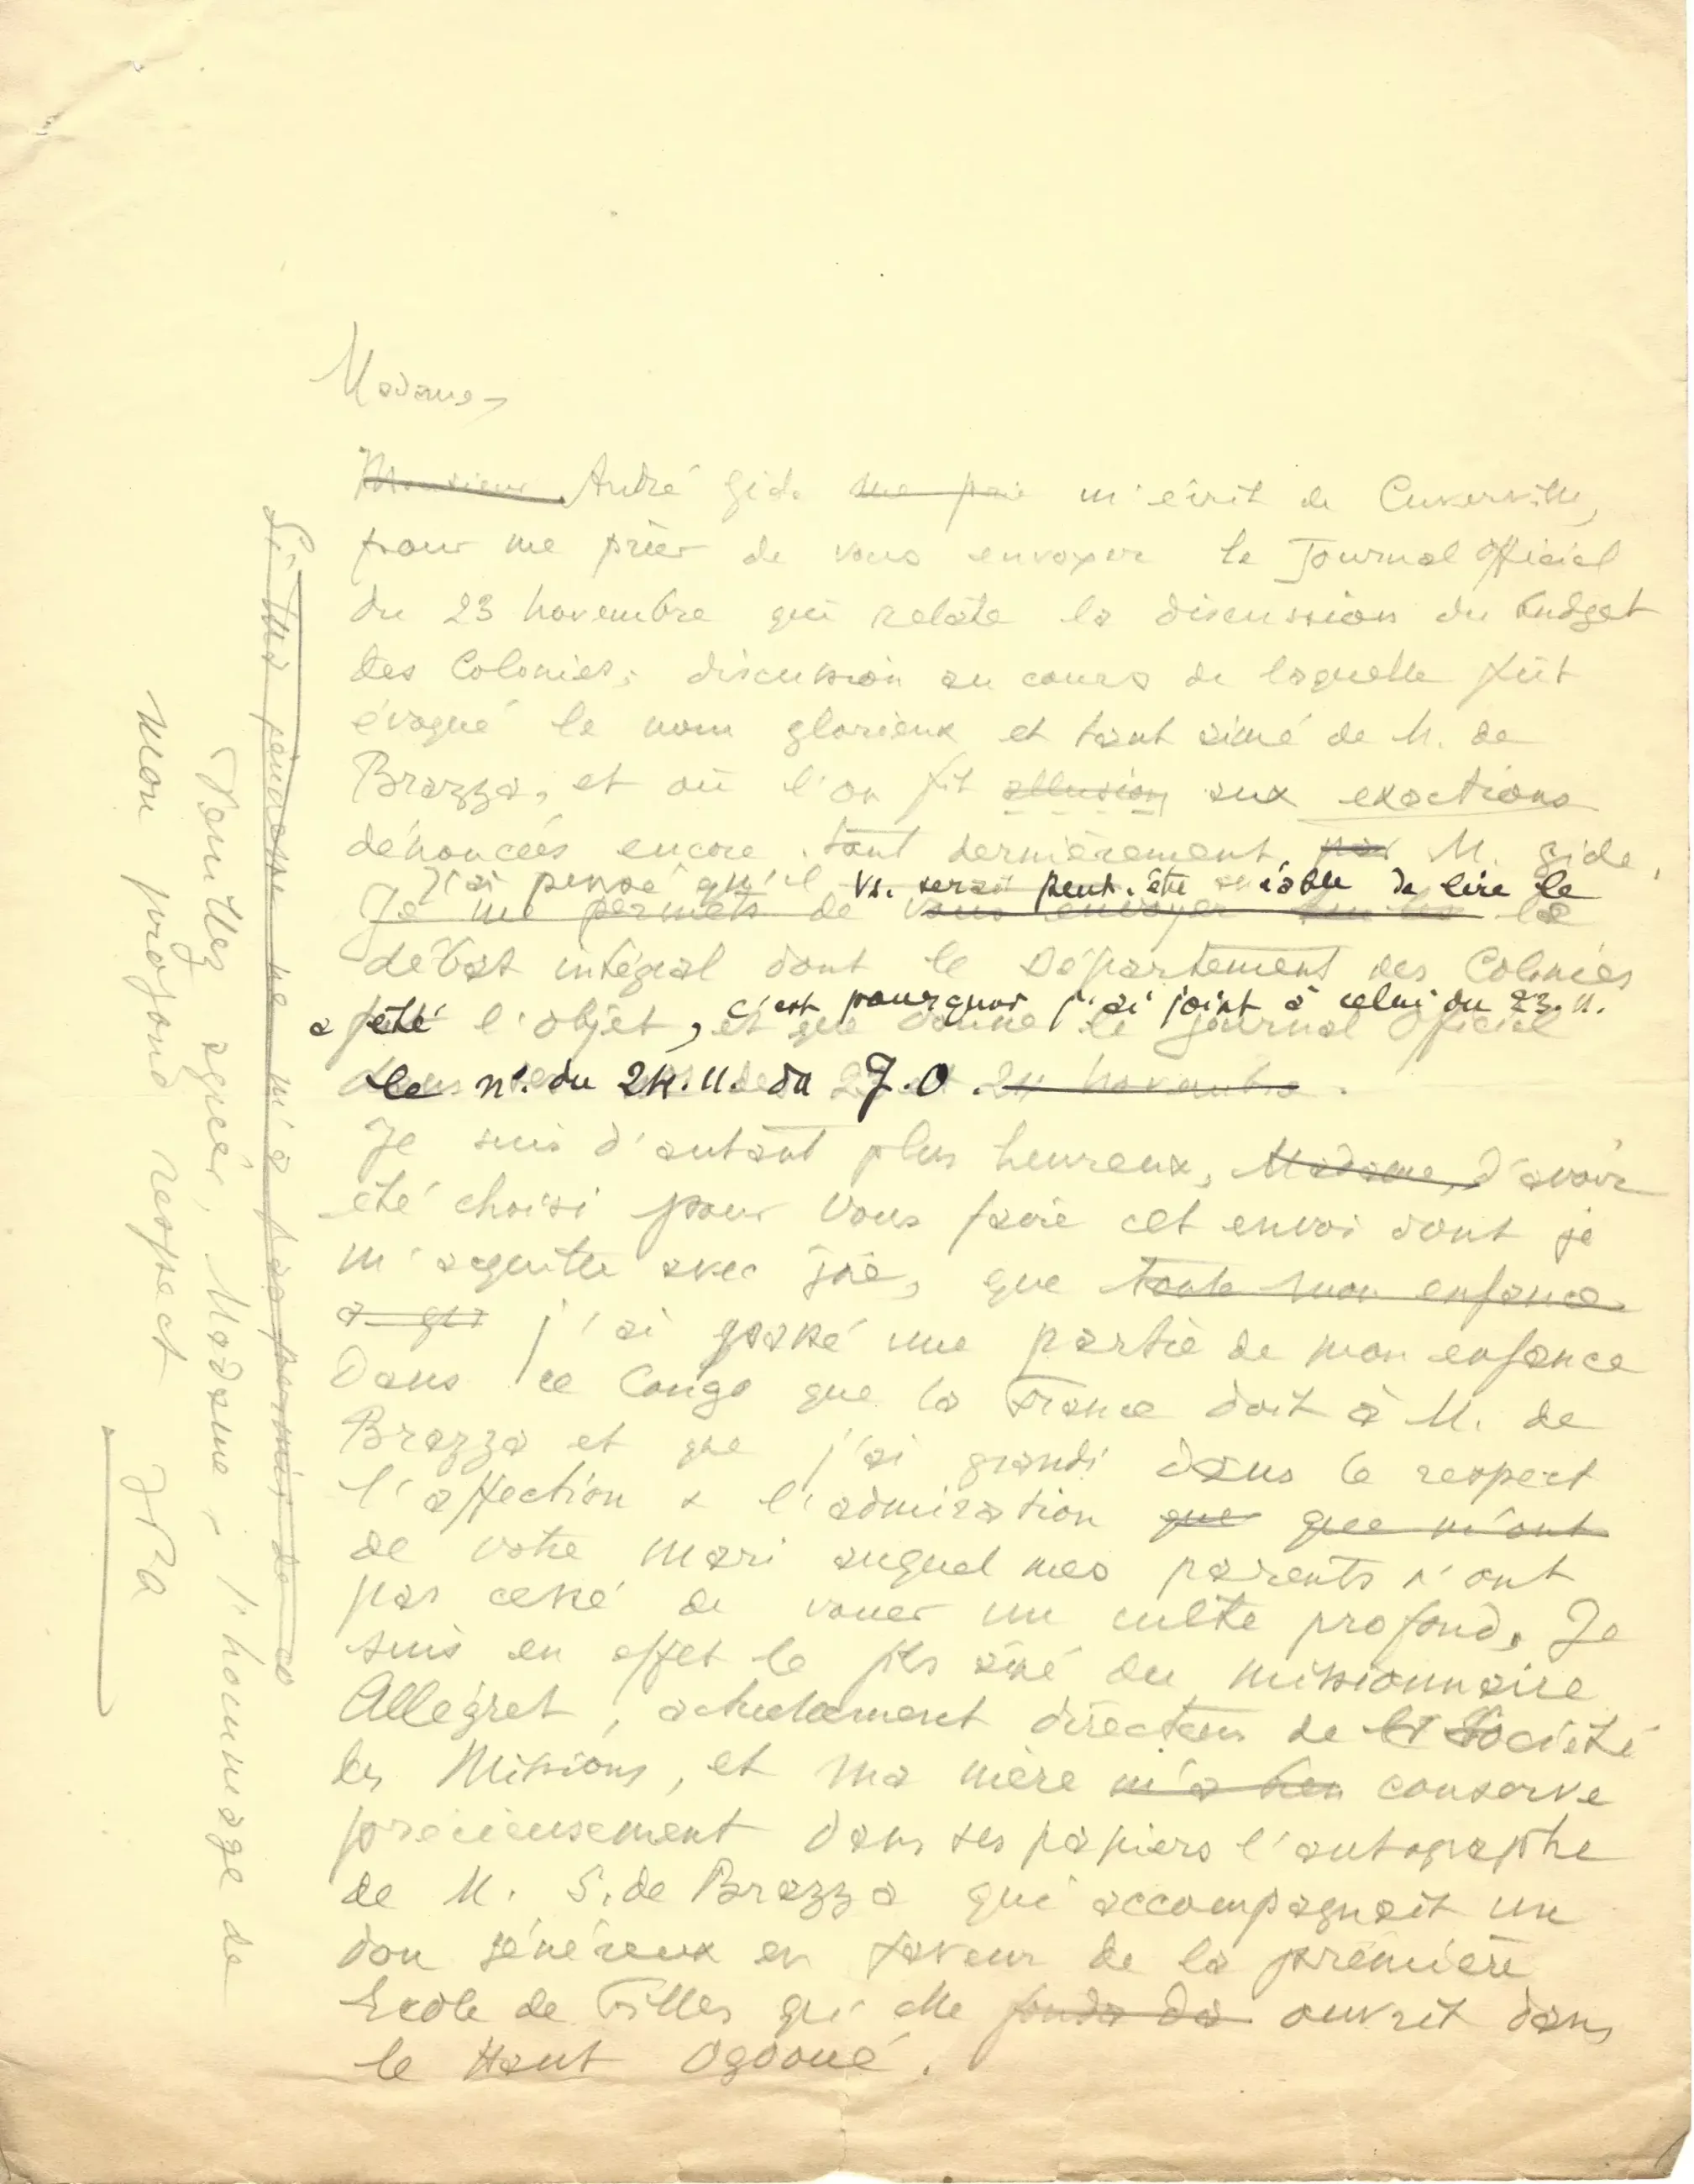 Madame,
Monsieur André Gide me prie m'écrit de Cuverville,
pour me prier de vous envoyer le Journal Officiel
du 23 novembre qui relate la discussion du budget
des Colonies, discussion au cours de laquelle fut
évoqué le nom glorieux et tant aimé de M. de
Brazza, et où l'on fit allusion aux exactions
dénoncées encore tout dernièrement par M. Gide.
J'ai pensé qu'il vs. serait peut-être de lire le
Je me permets de vous envoyer le
débat intégral dont le Département des Colonies
a été l'objet, c'est pourquoi j'ai joint à celui du 23.11.
et que donne le Journal Officiel
le n°. du 24.11. du J.O. 24 novembre.
Je suis d'autant plus heureux, Madame, d'avoir
été choisi pour vous faire cet envoi dont je
m'acquitte avec joie, que toute mon enfance
j'ai passé une partie de mon enfance
Dans ce Congo que la France doit à M. de
Brazza et que j'ai grandi dans le respect
l'affection & l'admiration que que m'ont
de votre mari auquel mes parents n'ont
pas cessé de vouer un culte profond. Je
suis en effet le fils aîné du missionnaire
Allégret, actuellement directeur de la Société
des Missions, et ma mère m'a conserve
précieusement dans ses papiers l'autographe
de M. S. de Brazza qui accompagnait un
don généreux en faveur de la première
Ecole de Filles qu'elle fonda da ouvrit dans
le Haut Ogooué.
Si ma jeunesse ne m'a pas permis de
Veuillez agréer, Madame, l'hommage de
mon profond respect